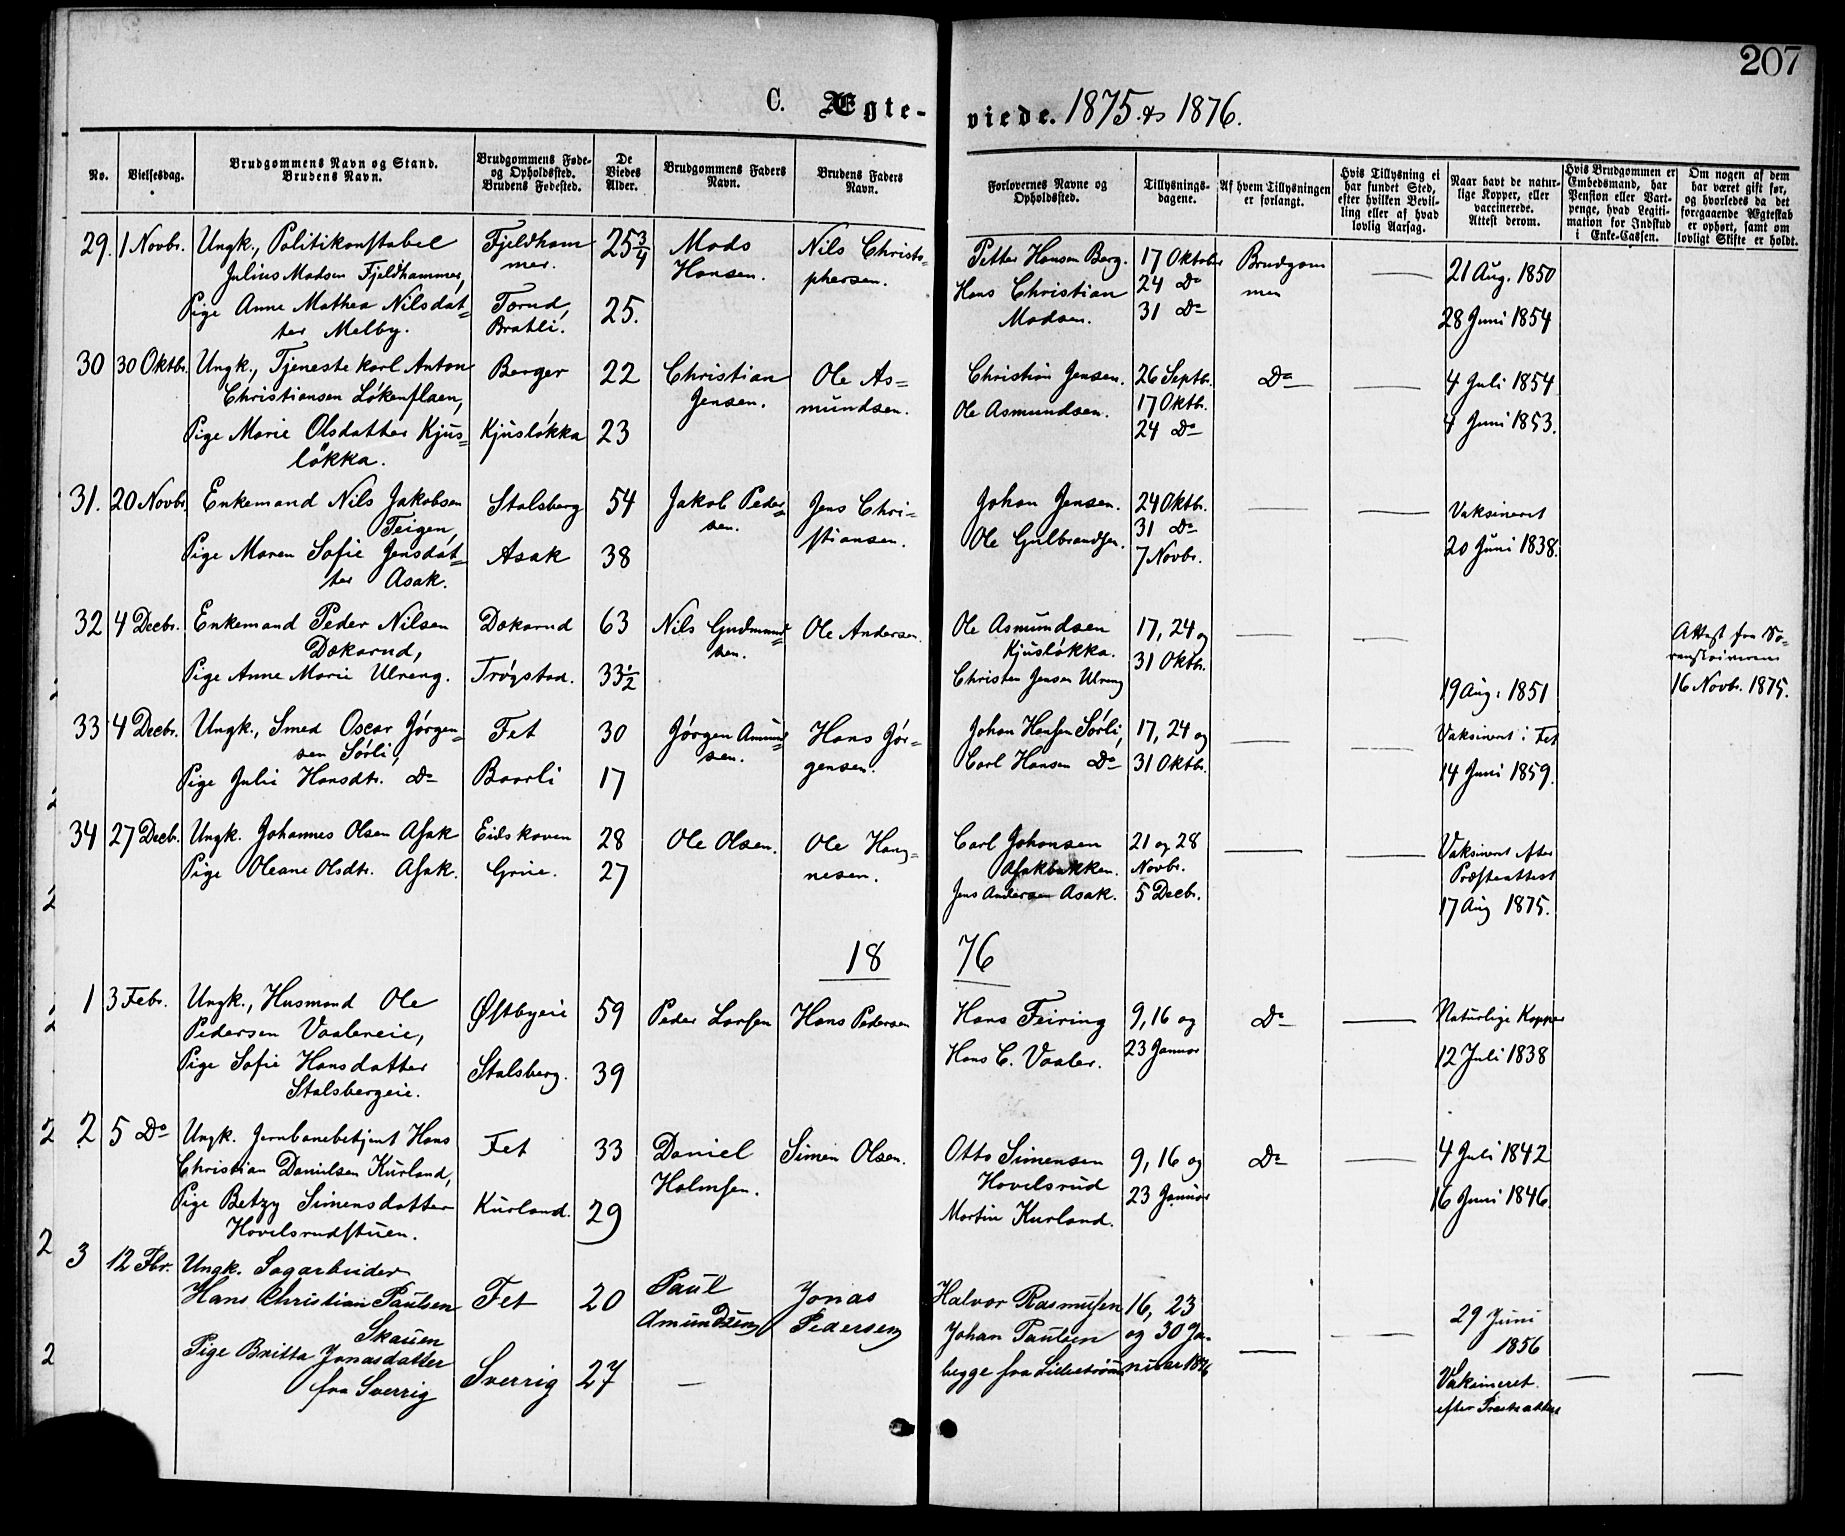 207
C. Ægte-viede. 1875 & 1876.
No.
Vielsesdag.
Brudgommens Navn og Stand.
Brudens Navn.
Brudgommens Føde-
og Opholdssted.
Brudens Fødested.
De
Viedes
Alder.
Brudgommens Faders
Navn.
Brudens Faders
Navn.
Forlovernes Navne og
Opholdssted.
Tillysnings-
dagene.
Af hvem Tillysningen
er forlangt.
Hvis Tillysning ei
har fundet Sted,
efter hvilken Bevil-
ling eller af hvad
lovlig Aarsag.
Naar havt de natur-
lige Kopper, eller
vaccinerede.
Attest derom.
Hvis Brudgommen er
Embedsmand, har
Pension eller Vart-
penge, hvad Legiti-
mation for Indskud
i Enke-Cassen.
Om nogen af dem
har været gift før,
og hvorledes da det
foregaaende Ægteskab
er ophørt, samt om
lovligt Skifte er holdt.
29. 1 Novbr. Ungk., Politikonstabel
Julius Madsen Fjeldhammer,
Pige Anne Mathea Nilsdat=
ter Melby.
Fjeldham
mer.
Torud,
Bratli.
25 3/4
25.
Mads
Hansen.
Nils Christo=
phersen.
Petter Hansen Berg.
Hans Christian
Madsen.
17 Oktober
24 Do
31 Do
Brudgom
men
—
21 Aug. 1850
28 Juni 1854
30 30 Oktbr. Ungk., Tjenestekarl Anton
Christiansen Løkenflaen,
Pige Marie Olsdatter Kjus=
løkka.
Berger
Kjusløkka
22
23
Christian
Jensen.
Ole As=
mundsen.
Christian Jensen.
Ole Asmundsen.
26 Septbr.
17 Oktb.
24 Do
Do
—
4 Juli 1854
4 Juni 1853.
31. 20 Novbr. Enkemand Nils Jakobsen
Teigen,
Pige Maren Sofie Jensdat=
ter Asak.
Stalsberg
Asak
54
38
Jakob Peder=
sen.
Jens Chri=
stiansen.
Johan Jensen.
Ole Gulbrandsen.
24 Oktbr.
31 Do
7 Novbr.
—
—
Vaksineret
20 Juni 1838.
32 4 Decbr. Enkemand Peder Nilsen
Dokarud,
Pige Anne Marie Ulreng.
Dokarud
Trøgstad.
63
33 1/2
Nils Gudmund=
sen.
Ole Andersen.
Ole Asmundsen
Kjusløkka.
Christen Jensen Ulreng
17, 24 og
31 Oktbr.
—
—
19 Aug. 1851
Attest fra
16 Novbr. 1875.
33 4 Decbr. Ungk., Smed Oscar Jørgen=
sen Sørli,
Pige Julie Hansdtr. Do
Fet
Baarli
30
17
Jørgen Amund=
sen.
Hans Jør=
gensen.
Johan Hansen Sørli,
Carl Hansen Do
17, 24 og
31 Oktbr.
—
—
Vaksineret i Fet
14 Juni 1859.
34 27 Decb. Ungk. Johannes Olsen Asak
Pige Oleane Olsdtr. Asak.
Eidskoven
Grue.
28
27
Ole Olsen.
Ole Han=
nesen.
Carl Johansen
Asakbakken.
Jens Andersen Asak.
21 og 28
Novbr.
5 Decbr.
—
—
Vaksineret efter
Præsteattest
17 Aug 1875.
1876
1 3 Febr. Ungk., Husmand Ole
Pedersen Vaalereie,
Pige Sofie Hansdatter
Stalsbergeie.
Østbyeie
Stalsberg.
59
39
Peder Larsen
Hans Pedersen
Hans Feiring
Hans C. Vaaler.
9, 16 og
23 Januar
Do
—
Naturlige Kopper
12 Juli 1838
2 5 Do Ungk. Jernbanebetjent Hans
Christian Danielsen Kurland,
Pige Betzy Simensdatter
Hovelsrudstuen.
Fet
Kurland.
33
29
Daniel
Holmsen.
Simen Olsen.
Otto Simensen
Hovelsrud
Martin Kurland.
9, 16 og
23 Januar
Do
—
4 Juli 1842
16 Juni 1846.
3 12 Fbr. Ungk. Sagarbeider
Hans Christian Paulsen
Skauen
Pige Britta Jonasdatter
fra Sverrig
Fet
Sverrig
20
27
Paul
Amundsen
—
Jonas
Pedersen
Halvor Rasmussen
Johan Paulsen
begge fra Lillestrøm
16, 23
og 30 Ja-
nuar 1876
—
—
29 Juni
1856
Vaksineret.
efter Præsteattest
—
—